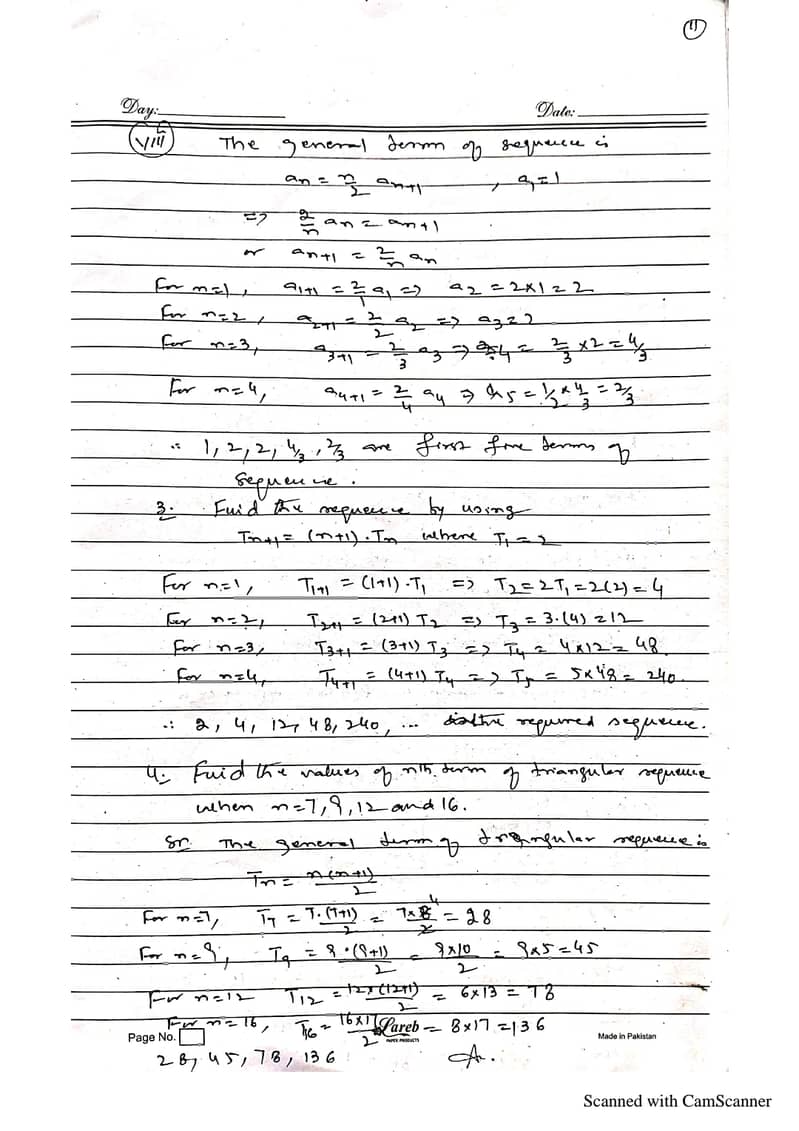 11
Day: Date:
VIII The general term of sequence is
an = n/2 an+1 , a1=1
=> 2/n an = an+1
or an+1 = 2/n an
For n=1, a1+1 = 2/1 a1 => a2 = 2×1 = 2
For n=2, a2+1 = 2/2 a2 => a3=2
For n=3, a3+1 = 2/3 a3 => a4 = 2/3 ×2 = 4/3
For n=4, a4+1 = 2/4 a4 => a5 = 1/2 × 4/3 = 2/3
∴ 1, 2, 2, 4/3, 2/3 are first five terms of
sequence.
3. Find the sequence by using
Tn+1 = (n+1).Tn where T1 = 2
For n=1, T1+1 = (1+1).T1 => T2 = 2T1 = 2(2) = 4
For n=2, T2+1 = (2+1) T2 => T3 = 3.(4) = 12
For n=3, T3+1 = (3+1) T3 => T4 = 4×12 = 48.
For n=4, T4+1 = (4+1) T4 => T5 = 5×48 = 240.
∴ 2, 4, 12, 48, 240, ... is the required sequence.
4. Find the values of nth term of triangular sequence
when n=7, 9, 12 and 16.
The general term of triangular sequence is
Tn = n(n+1)/2
For n=7, T7 = 7.(7+1)/2 = 7×8/2 4 = 28
For n=9, T9 = 9.(9+1)/2 = 9×10/2 = 9×5=45
For n=12 T12 = 12×(12+1)/2 = 6×13 = 78
For n=16, T16 = 16×17/2 = 8×17 = 136
Page No. Lareb PAPER PRODUCTS Made in Pakistan
28, 45, 78, 136
Scanned with CamScanner